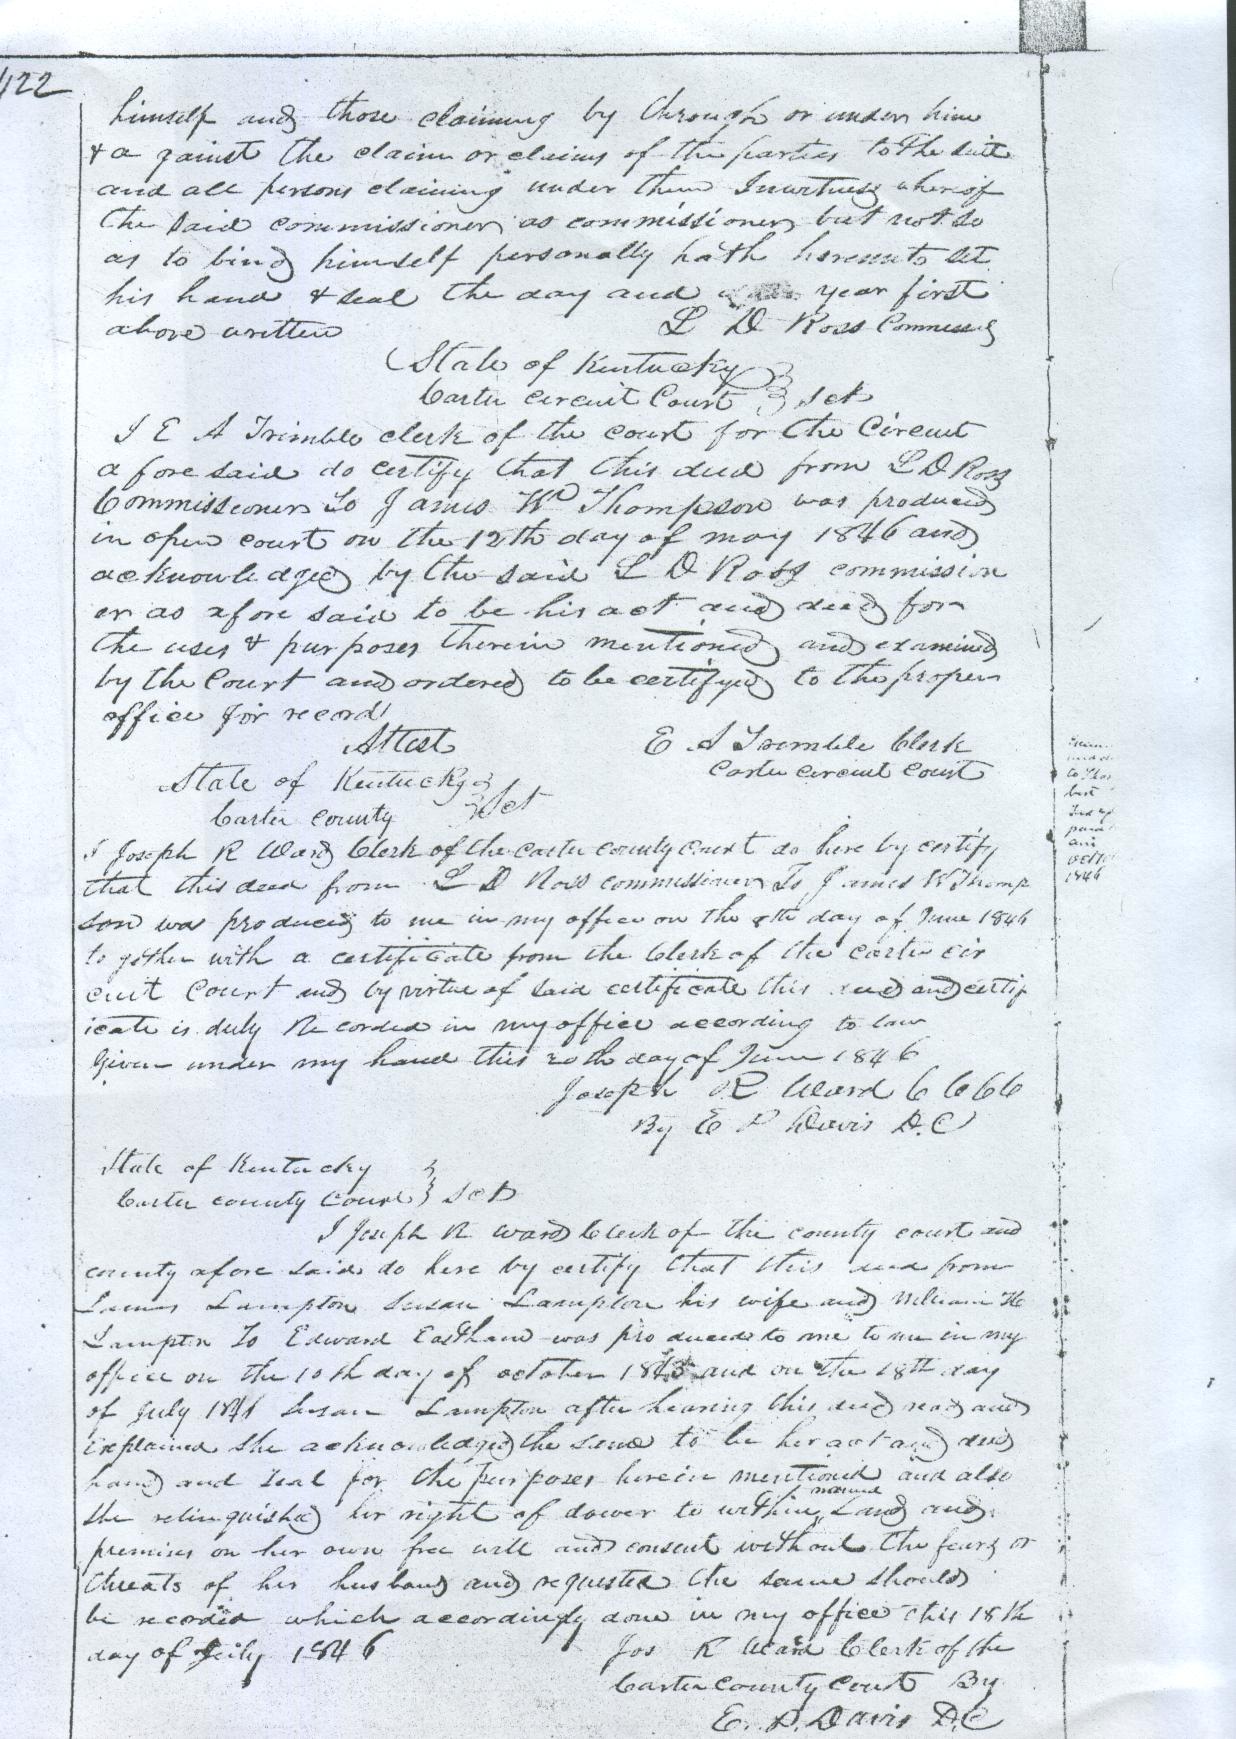 422
himself and those claiming by through or under him
& a gainst the claim or claims of the parties to the suit
and all persons claiming under them Inwitness whereof
the said commissioner as commissioner but not so
as to bind himself personally hath hereunto set
his hand & seal the day and year first
above written L D Ross Commiss
State of Kentucky
Carter circuit Court } Sct
I E A Trimble clerk of the court for the Circuit
a fore said do certify that this deed from L D Ross
Commissioner To James W Thompson was produced
in open court on the 12th day of may 1846 and
acknowledged by the said L D Ross commission
er as afore said to be his act and deed for
the uses & purposes therein mentioned and examined
by the Court and ordered to be certifyed to the proper
office for record
Attest E A Trimble Clerk
Carter circuit court
State of Kentucky }
Carter County } Sct
I Joseph R Ward Clerk of the carter county court do here by certify
that this deed from L D Ross commissioner To James W Thomp
son was produced to me in my office on the day of June 1846
to gether with a certificate from the Clerk of the carter cir
cuit Court and by virtue of said certificate this deed and certif
icate is duly Recorded in my office according to law
Given under my hand this 20th day of June 1846
Joseph R Ward C C C C
By E P Davis D.C
State of Kentucky }
Carter county Court } Sct
I Joseph R Ward Clerk of the county court and
county afore said do here by certify that this deed from
James Lampton Susan Lampton his wife and William H
Lampton To Edward Eastham was produced to me to me in my
office on the 10th day of october 1845 and on the 18th day
of July 1846 Susan Lampton after hearing this deed read and
explained she acknowledged the same to be her act and deed
hand and seal for the purposes herein mentioned and also
she relinquished her right of dower to within named Land and
premises on her own free will and consent without the fears or
threats of her husband and requested the same should
be recorded which accordingly done in my office this 18th
day of July 1846 Jos R Ward Clerk of the
Carter County Court By
E. P. Davis D.C
to
1846